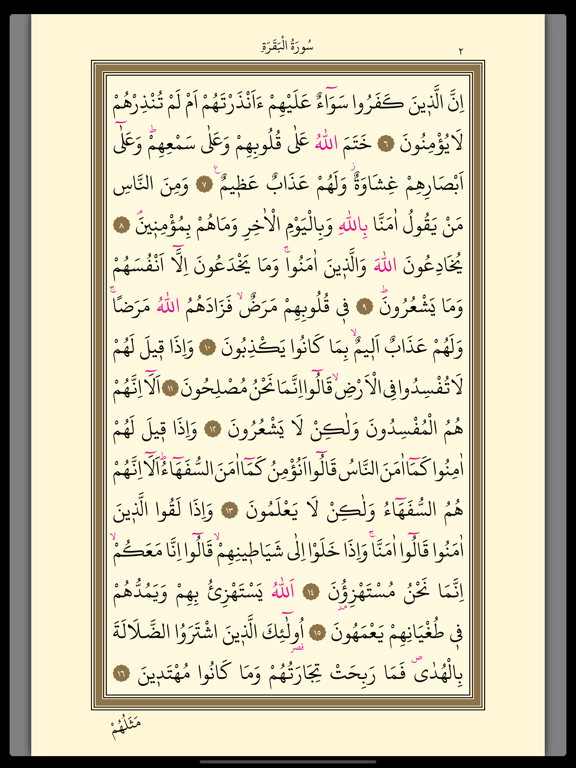 سُورَةُ الْبَقَرَةِ ٢
اِنَّ الَّذ۪ينَ كَفَرُوا سَوَٓاءٌ عَلَيْهِمْ ءَاَنْذَرْتَهُمْ اَمْ لَمْ تُنْذِرْهُمْ
لَا يُؤْمِنُونَ ٦ خَتَمَ اللّٰهُ عَلٰى قُلُوبِهِمْ وَعَلٰى سَمْعِهِمْۜ وَعَلٰٓى
اَبْصَارِهِمْ غِشَاوَةٌۘ وَلَهُمْ عَذَابٌ عَظ۪يمٌ۟ ٧ وَمِنَ النَّاسِ
مَنْ يَقُولُ اٰمَنَّا بِاللّٰهِ وَبِالْيَوْمِ الْاٰخِرِ وَمَا هُمْ بِمُؤْمِن۪ينَۢ ٨
يُخَادِعُونَ اللّٰهَ وَالَّذ۪ينَ اٰمَنُواۚ وَمَا يَخْدَعُونَ اِلَّٓا اَنْفُسَهُمْ
وَمَا يَشْعُرُونَۜ ٩ ف۪ي قُلُوبِهِمْ مَرَضٌۙ فَزَادَهُمُ اللّٰهُ مَرَضًاۚ
وَلَهُمْ عَذَابٌ اَل۪يمٌۙ بِمَا كَانُوا يَكْذِبُونَ ١٠ وَاِذَا ق۪يلَ لَهُمْ
لَا تُفْسِدُوا فِي الْاَرْضِۙ قَالُٓوا اِنَّمَا نَحْنُ مُصْلِحُونَ ١١ اَلَٓا اِنَّهُمْ
هُمُ الْمُفْسِدُونَ وَلٰكِنْ لَا يَشْعُرُونَ ١٢ وَاِذَا ق۪يلَ لَهُمْ
اٰمِنُوا كَمَٓا اٰمَنَ النَّاسُ قَالُٓوا اَنُؤْمِنُ كَمَٓا اٰمَنَ السُّفَهَٓاءُۜ اَلَٓا اِنَّهُمْ
هُمُ السُّفَهَٓاءُ وَلٰكِنْ لَا يَعْلَمُونَ ١٣ وَاِذَا لَقُوا الَّذ۪ينَ
اٰمَنُوا قَالُٓوا اٰمَنَّاۚ وَاِذَا خَلَوْا اِلٰى شَيَاط۪ينِهِمْۙ قَالُٓوا اِنَّا مَعَكُمْۙ
اِنَّمَا نَحْنُ مُسْتَهْزِؤُ۫نَ ١٤ اَللّٰهُ يَسْتَهْزِئُ بِهِمْ وَيَمُدُّهُمْ
ف۪ي طُغْيَانِهِمْ يَعْمَهُونَ ١٥ اُو۬لٰٓئِكَ الَّذ۪ينَ اشْتَرَوُا الضَّلَالَةَ
بِالْهُدٰىۖ فَمَا رَبِحَتْ تِجَارَتُهُمْ وَمَا كَانُوا مُهْتَد۪ينَ ١٦
مَثَلُهُمْ